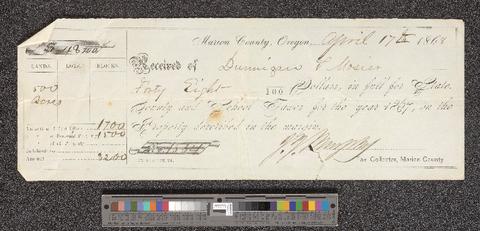 $ 48 100
Marion County, Oregon, April 17th 1868
LANDS. LOTS. BLOCKS.
Received of Dunnigan & Mosier
500
Acres
Forty Eight 100 Dollars, in full for State,
County and School Taxes for the year 1867, on the
Property described in the margin.
1700
1500
3200
Tax Collector, Marion County